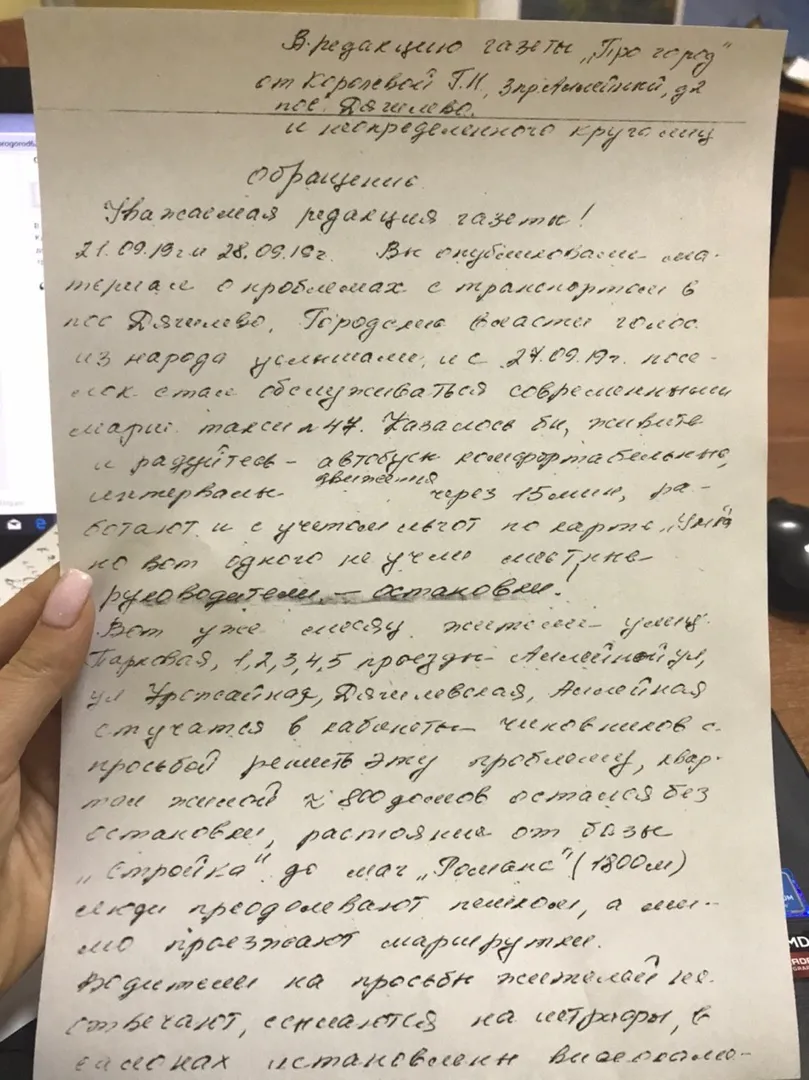 В редакцию газеты „Про город"
от Королевой Г.Н, 3 пр. Аллейный, д2
пос. Дягилево.
и неопределенного круга лиц
обращение
Уважаемая редакция газеты!
21.09.19г и 28.09.19г. Вы опубликовали ма-
териал о проблемах с транспортом в
пос Дягилево, Городские власти голос
из народа услышали, и с 27.09.19г. посе-
лок стал обслуживаться современными
марш. такси №47. Казалось бы, живите
и радуйтесь - автобусы комфортабельные,
движения
интервалы через 15 мин, ра-
ботают и с учетом льгот по карте „Умка"
но вот одного не учли местные
руководители, - остановки!
Вот уже месяц жители улиц
Парковая, 1,2,3,4,5 проезды Аллейной ул,
ул Урожайная, Дягилевская, Аллейная
стучатся в кабинеты чиновников с
просьбой решить эту проблему, квар-
тал жилой ≈ 800 домов остался без
остановки, растояние от базы
„Стройка" до маг „Романс" (1800м)
люди преодолевают пешком, а ми-
мо проезжают маршрутки.
Водители на просьбы жителей не
отвечают, ссылаются на штрафы, в
салонах установлены видеокаме-